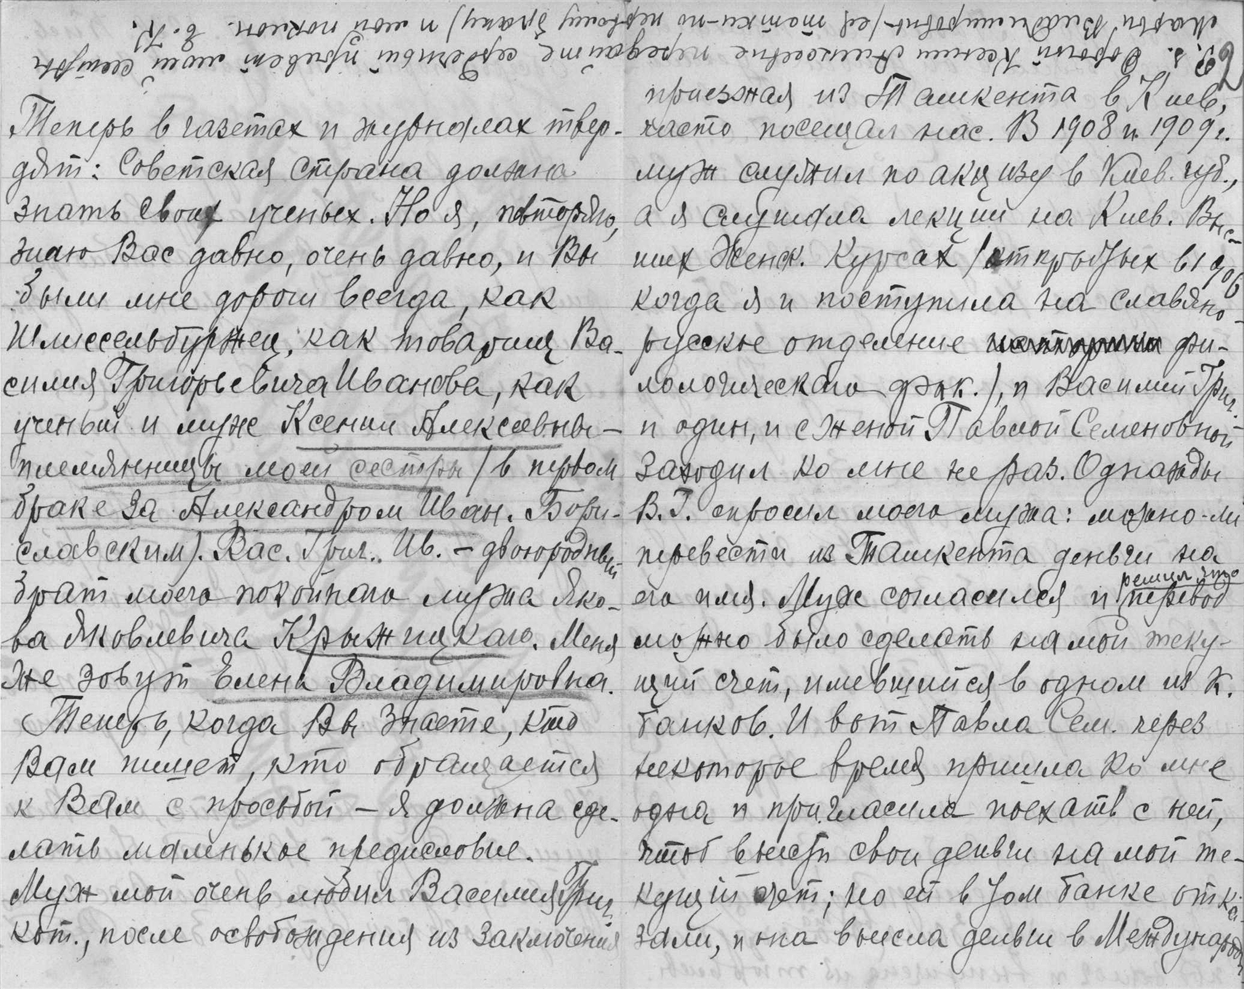 Р. S. Дорогой Ксении Алексеевне передайте сердечный привет моей сестры
Марьи Владимировны (ея тетки-по первому браку) и мой поклон. Е. К.
2
Теперь в газетах и журналах твер-
дят: Советская страна должна
знать своих ученых. Но я, повторяю,
знаю Вас давно, очень давно, и Вы
были мне дороги всегда, как
Шлиссельбуржец, как товарищ Ва-
силия Григорьевича Иванова, как
ученый и муж Ксении Алексеевны –
племянницы моей сестры (в первом
браке за Александром Иван. Бори-
славским). Вас. Григ. Ив. – двоюродный
брат моего покойнаго мужа Яко-
ва Яковлевича Крыжицкаго. Меня
же зовут Елена Владимировна.
Теперь, когда Вы знаете, кто
Вам пишет, кто обращается
к Вам с просьбой – я должна сде-
лать маленькое предисловие.
Муж мой очень любил Василия Григ.
кот., после освобождения из заключения
приезжая из Ташкента в Киев,
часто посещал нас. В 1908 и 1909 г.
муж служил по акцизу в Киев. губ.,
а я слушала лекции на Киев. Выс-
ших Женск. Курсах (открытых в 1906
когда я и поступила на славяно-
русское отделение фи-
лологическаго фак.), и Василий Григ.
и один, и с женой Павлой Семеновной
заходил ко мне не раз. Однажды
В. Г. спросил моего мужа: можно-ли
перевести из Ташкента деньги на
его имя. Муж согласился и решил что перевод
можно было сделать на мой теку-
щий счет, имевшийся в одном из К.
банков. И вот Павла Сем. через
некоторое время пришла ко мне
одна и пригласила поехать с ней,
чтоб внести свои деньги на мой те-
кущий счет; но ей в том банке отка-
зали, и она внесла деньги в Международн.